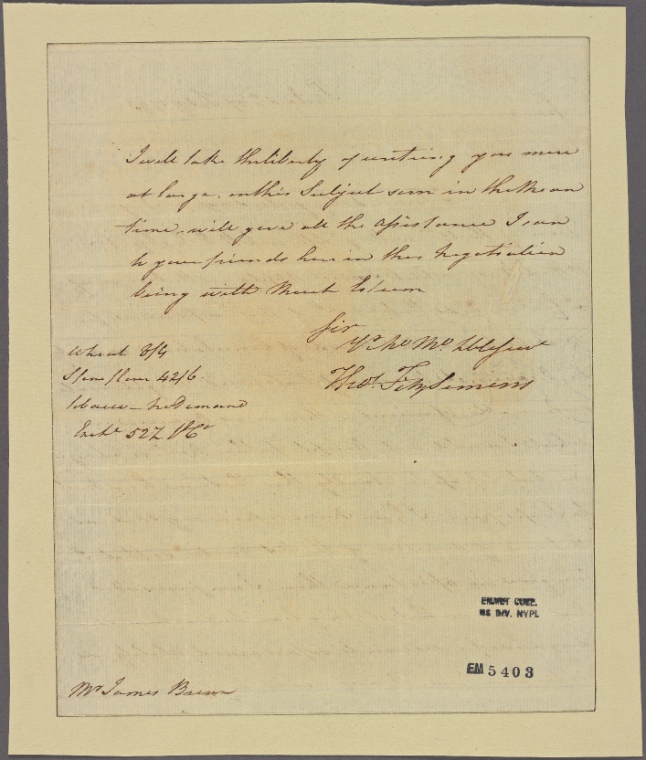 I will take the liberty of writing you more
at large on this Subject soon in the Mean
time, will give all the assistance I can
to your friends here in this Negotiation
being with Much Esteem
Sir
Yr Mo Obt Servt
Thos. FitzSimons
Wheat 8/4
Sfine flour 42/6.
Tobacco – No Demand
Exche 52½ P Ct
Mr James Brown
EMMET COLL.
MS DIV. NYPL
EM 5403